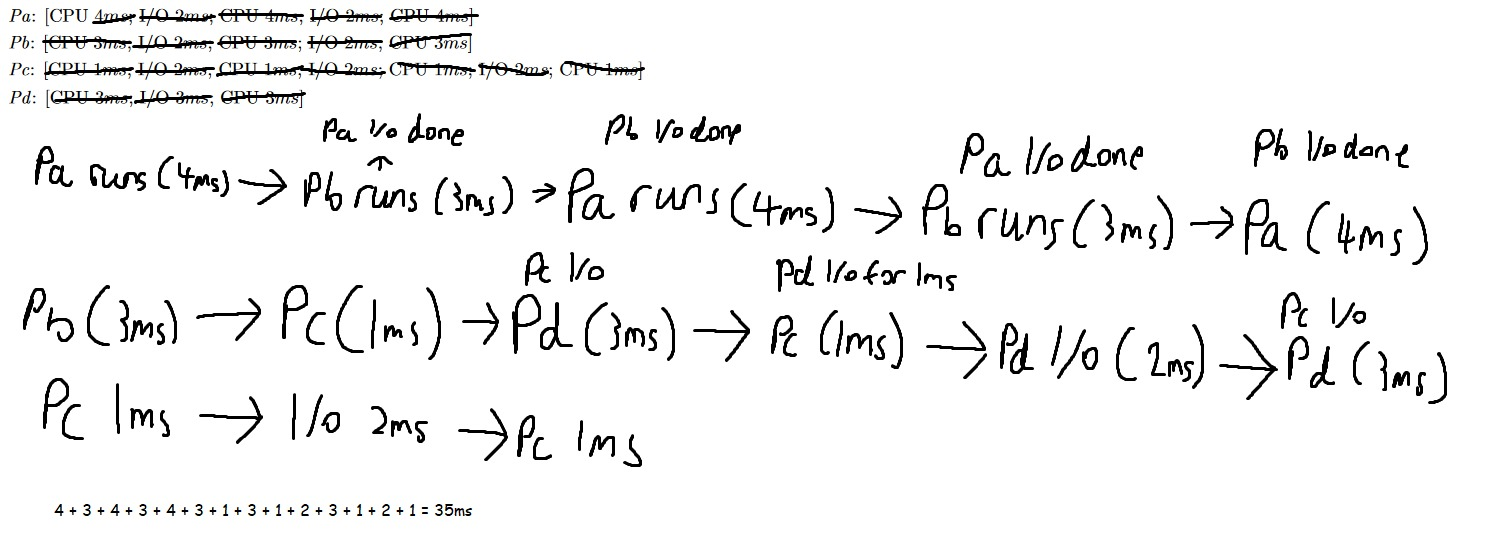 Pa: [CPU 4ms; I/O 2ms; CPU 4ms; I/O 2ms; CPU 4ms]
Pb: [CPU 3ms; I/O 2ms; CPU 3ms; I/O 2ms; CPU 3ms]
Pc: [CPU 1ms; I/O 2ms; CPU 1ms; I/O 2ms; CPU 1ms; I/O 2ms; CPU 1ms]
Pd: [CPU 3ms; I/O 3ms; CPU 3ms]
Pa I/o done Pb I/o done Pa I/o done Pb I/o done
Pa runs (4ms) → Pb runs (3ms) → Pa runs (4ms) → Pb runs (3ms) → Pa (4ms)
Pc I/o Pd I/o for 1ms Pc I/o
Pb (3ms) → Pc (1ms) → Pd (3ms) → Pc (1ms) → Pd I/o (2ms) → Pd (3ms)
Pc 1ms → I/o 2ms → Pc 1ms
4 + 3 + 4 + 3 + 4 + 3 + 1 + 3 + 1 + 2 + 3 + 1 + 2 + 1 = 35ms